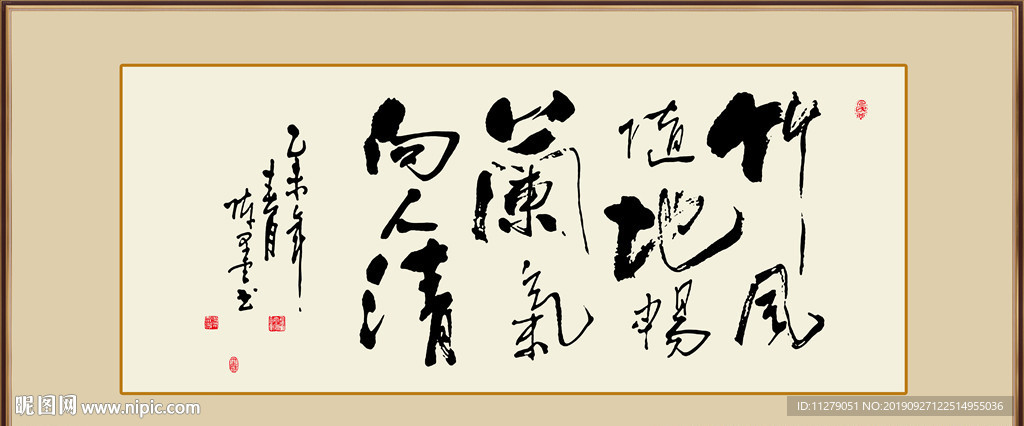 竹風
隨地暢
蘭氣
向人清
乙未年
春月
陳墨雲书
昵图网 www.nipic.com
ID:11279051 NO:20190927122514955036